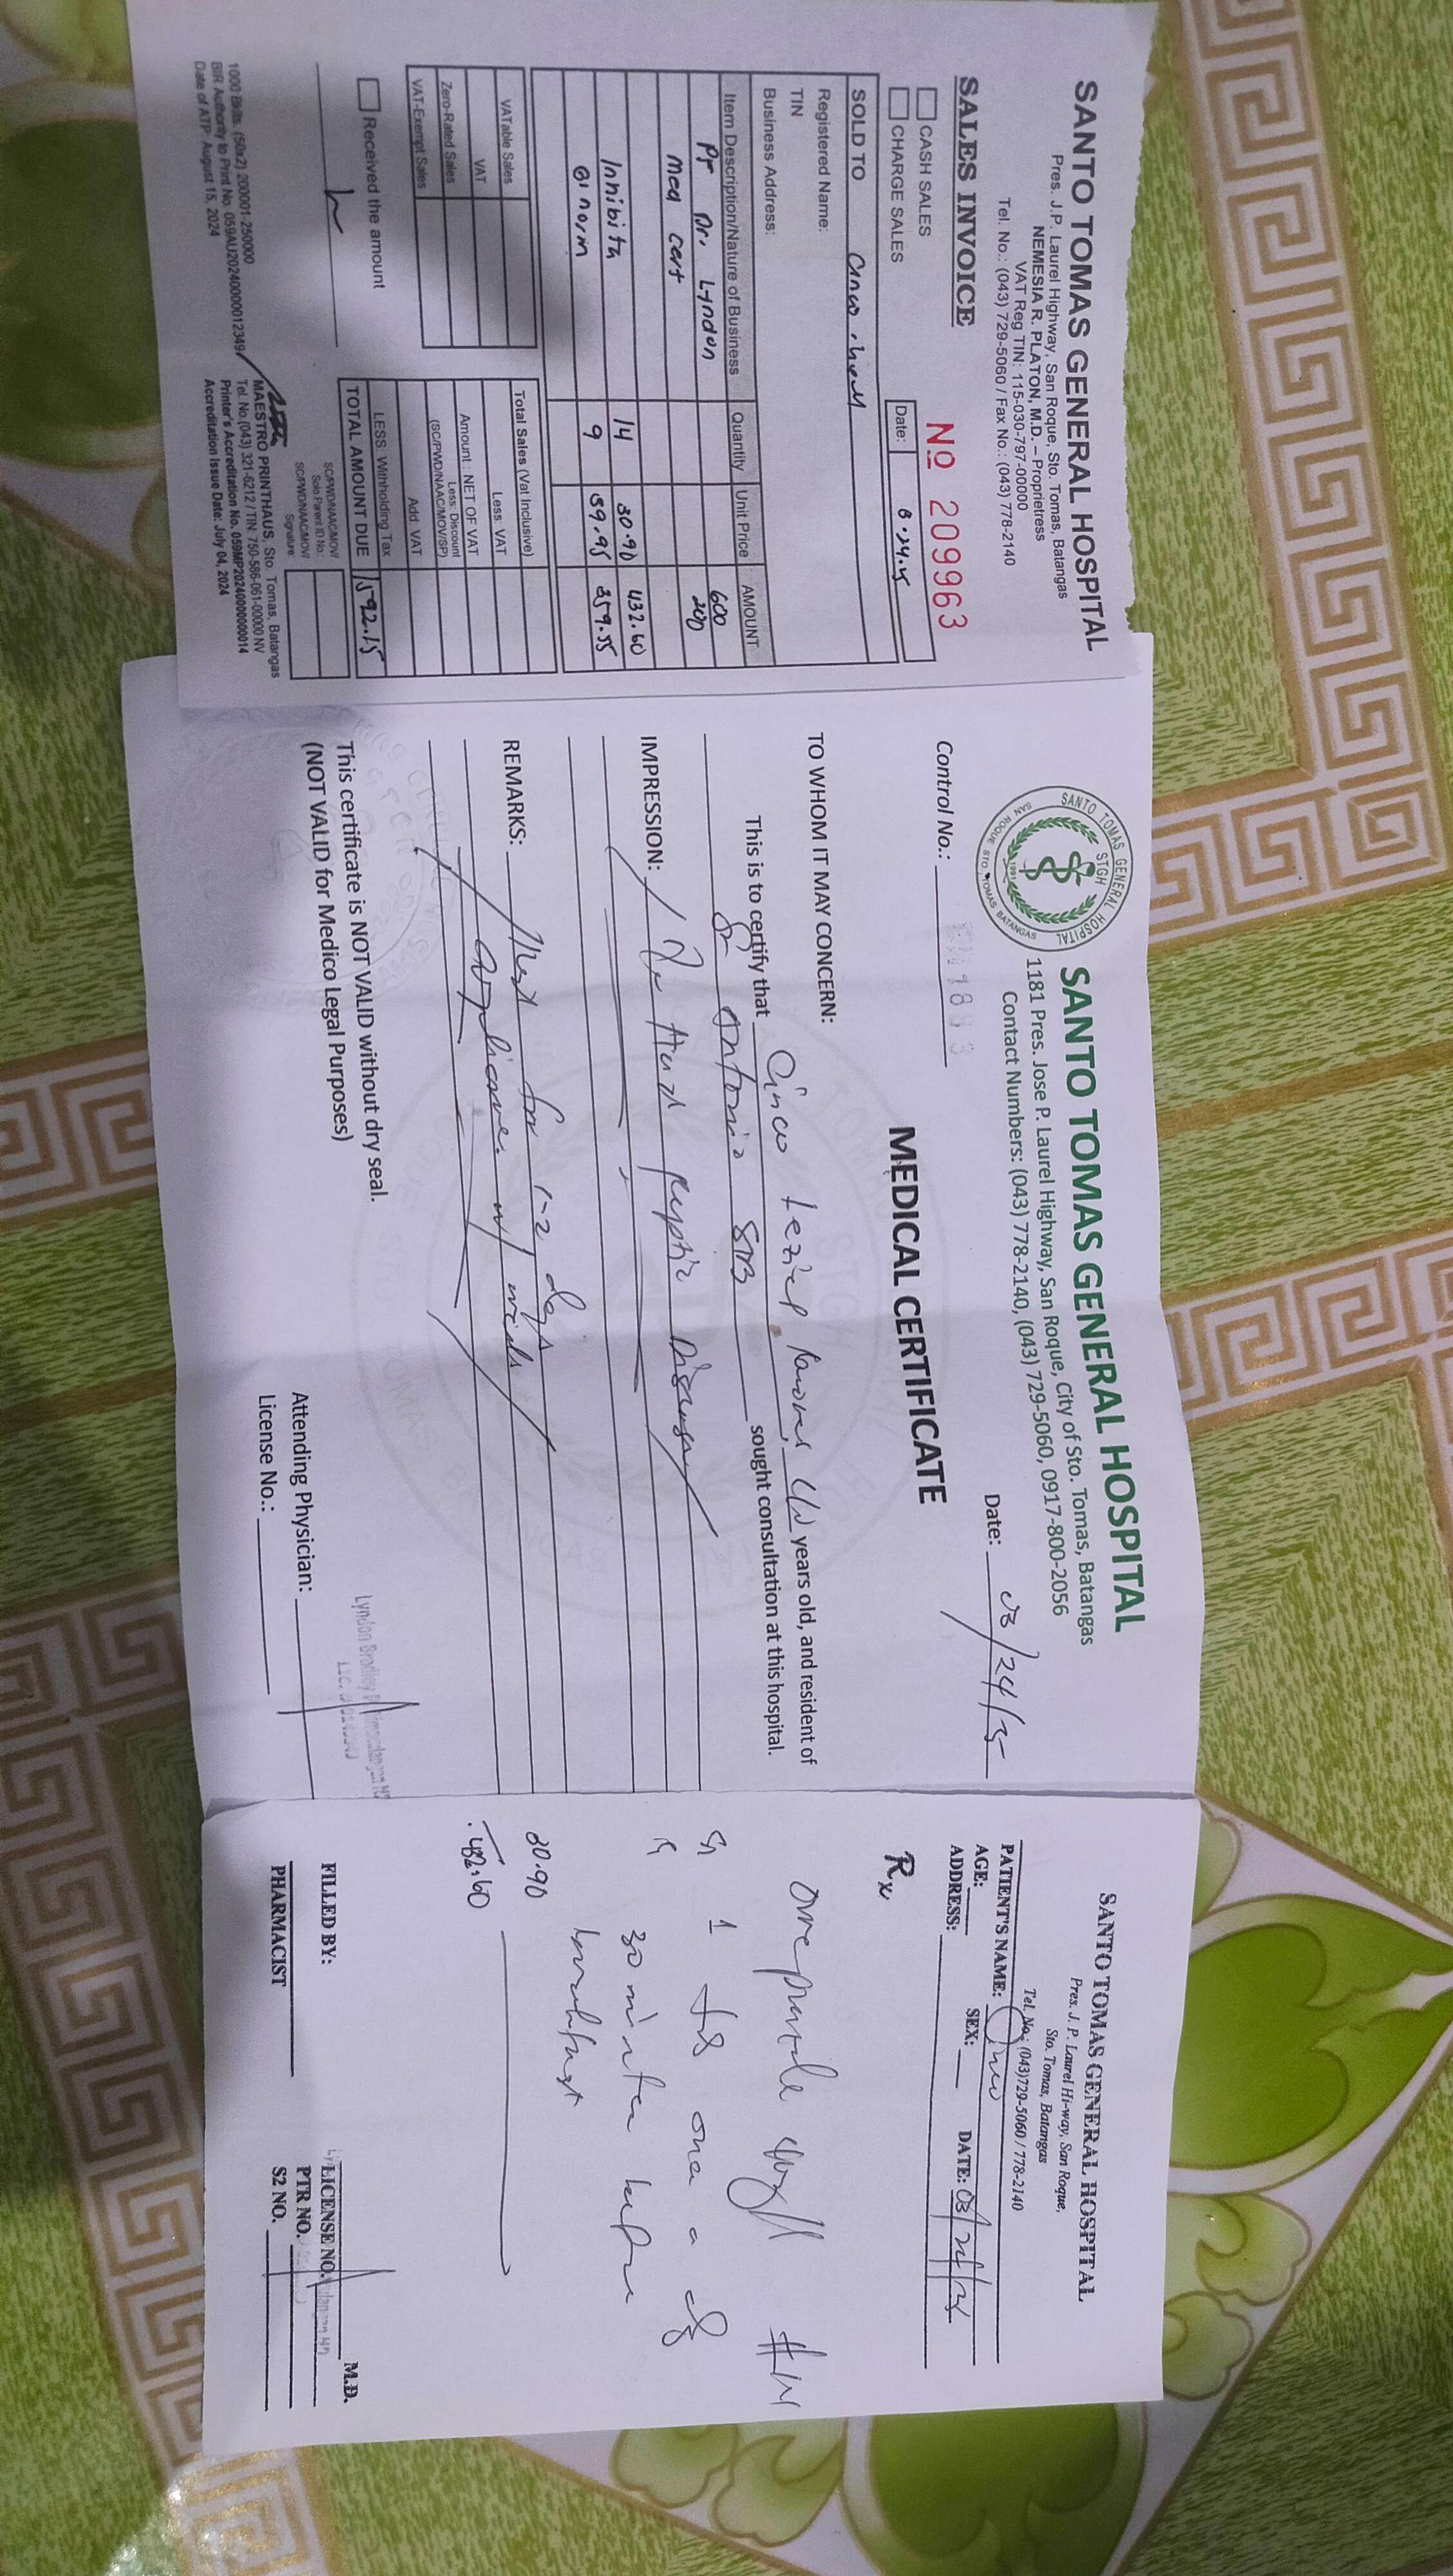 SANTO TOMAS GENERAL HOSPITAL
Pres. J.P. Laurel Highway, San Roque, Sto. Tomas, Batangas
NEMESIA R. PLATON, M.D. – Proprietress
VAT Reg TIN: 115-030-797-00000
Tel. No.: (043) 729-5060 / Fax No.: (043) 778-2140
SALES INVOICE
No 209963
CASH SALES
CHARGE SALES
Date:
SOLD TO Cinco
Registered Name:
TIN
Business Address:
Item Description/Nature of Business Quantity Unit Price AMOUNT
Pf Dr. Lyndon 600
med cert 200
Inhibita 14 30.90 432.60
Gi norm 9 39.95 359.55
Total Sales (Vat Inclusive)
VATable Sales Less: VAT
VAT Amount : NET OF VAT
Zero-Rated Sales Less: Discount
(SC/PWD/NAAC/MOV/SP)
VAT-Exempt Sales Add: VAT
LESS: Withholding Tax
Received the amount TOTAL AMOUNT DUE 1592.15
SC/PWD/NAAC/MOV/
Solo Parent ID No.:
SC/PWD/NAAC/MOV/
Signature
1000 Bklts. (50x2) 200001-250000
BIR Authority to Print No. 059AU20240000012349
Date of ATP: August 15, 2024
MAESTRO PRINTHAUS, Sto. Tomas, Batangas
Tel. No.(043) 321-6212 / TIN: 750-586-061-00000 NV
Printer's Accreditation No. 059MP20240000000014
Accreditation Issue Date: July 04, 2024
SANTO TOMAS GENERAL HOSPITAL
SAN ROQUE STO. TOMAS BATANGAS
STGH
1991
SANTO TOMAS GENERAL HOSPITAL
1181 Pres. Jose P. Laurel Highway, San Roque, City of Sto. Tomas, Batangas
Contact Numbers: (043) 778-2140, (043) 729-5060, 0917-800-2056
Control No.: Date: 03/24/25
MEDICAL CERTIFICATE
TO WHOM IT MAY CONCERN:
This is to certify that Cinco Leziel Ramos, years old, and resident of
Sn Antonio STB sought consultation at this hospital.
IMPRESSION: peptic Disease
REMARKS: Rest for 1-2 days
compliance w/ meds
This certificate is NOT VALID without dry seal.
(NOT VALID for Medico Legal Purposes)
Attending Physician:
License No.:
SANTO TOMAS GENERAL HOSPITAL
Pres. J. P. Laurel Hi-way, San Roque,
Sto. Tomas, Batangas
Tel. No.: (043)729-5060 / 778-2140
PATIENT'S NAME: Cinco
AGE: SEX: DATE:
ADDRESS:
Rx
Omeprazole #14
1 once a
30 minutes before
breakfast
30.90
432.60
FILLED BY:
PHARMACIST
M.D.
LICENSE NO.
PTR NO.
S2 NO.